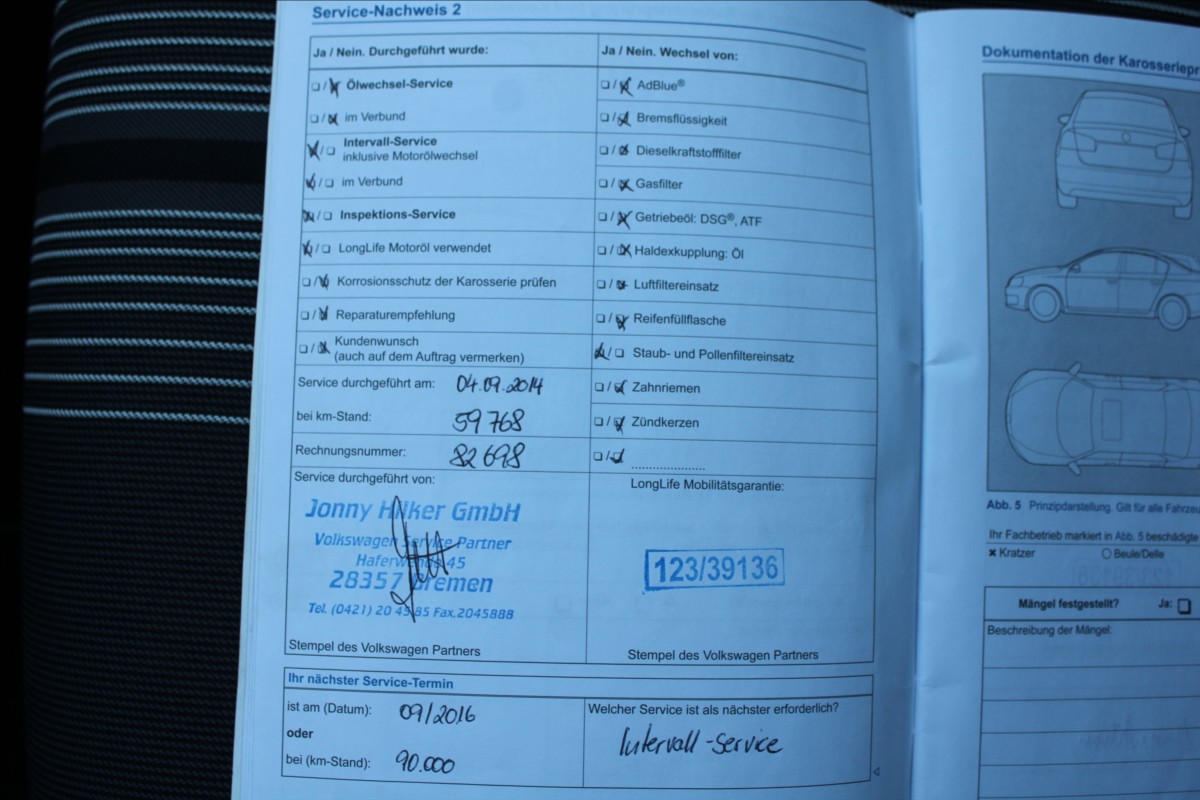 Service-Nachweis 2
Ja / Nein. Durchgeführt wurde:
Ölwechsel-Service
im Verbund
Intervall-Service
inklusive Motorölwechsel
im Verbund
Inspektions-Service
LongLife Motoröl verwendet
Korrosionsschutz der Karosserie prüfen
Reparaturempfehlung
Kundenwunsch
(auch auf dem Auftrag vermerken)
Service durchgeführt am: 04.09.2014
bei km-Stand: 59 768
Rechnungsnummer: 82 698
Service durchgeführt von:
Jonny Hilker GmbH
Volkswagen Service Partner
45
28357 Bremen
Tel. (0421) 20 45 85 Fax.2045888
Stempel des Volkswagen Partners
Ja / Nein. Wechsel von:
AdBlue®
Bremsflüssigkeit
Dieselkraftstofffilter
Gasfilter
Getriebeöl: DSG®, ATF
Haldexkupplung: Öl
Luftfiltereinsatz
Reifenfüllflasche
Staub- und Pollenfiltereinsatz
Zahnriemen
Zündkerzen
LongLife Mobilitätsgarantie:
123/39136
Stempel des Volkswagen Partners
Ihr nächster Service-Termin
ist am (Datum): 09/2016
oder
bei (km-Stand): 90.000
Welcher Service ist als nächster erforderlich?
Intervall-Service
Dokumentation der Karosseriepr
Abb. 5 Prinzipdarstellung. Gilt für alle Fahrzeu
Ihr Fachbetrieb markiert in Abb. 5 beschädigte
Kratzer
Beule/Delle
Mängel festgestellt? Ja:
Beschreibung der Mängel: